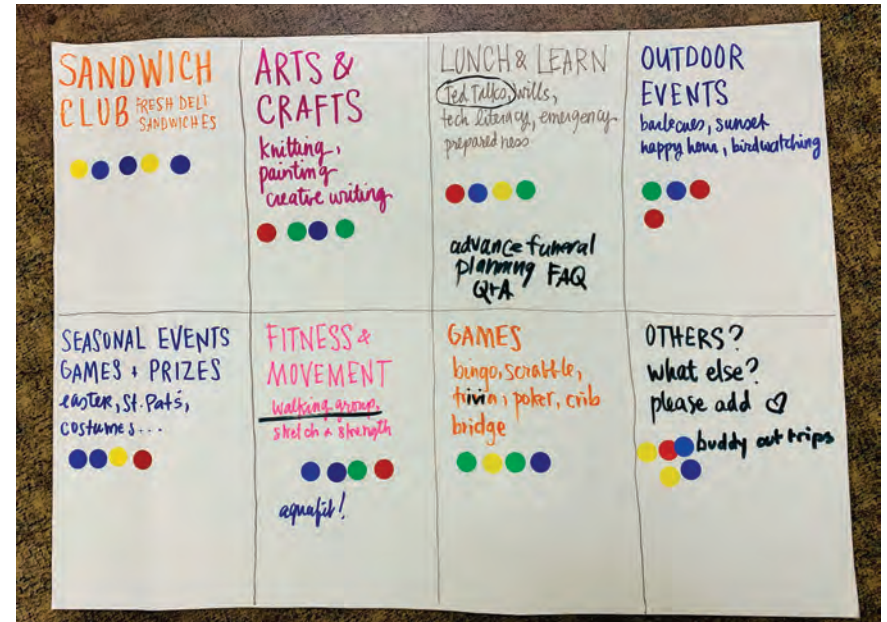 SANDWICH
CLUB FRESH DELI
SANDWICHES
ARTS &
CRAFTS
Knitting,
painting
creative writing
LUNCH & LEARN
Ted Talks, wills,
tech literacy, emergency
preparedness
advance funeral
planning FAQ
Q+A
OUTDOOR
EVENTS
barbecues, sunset
happy hour, birdwatching
SEASONAL EVENTS
GAMES + PRIZES
easter, St. Pat's,
costumes...
FITNESS &
MOVEMENT
walking group,
stretch & strength
aquafit!
GAMES
bingo, scrabble,
trivia, poker, crib
bridge
OTHERS?
what else?
please add ♡
buddy out trips